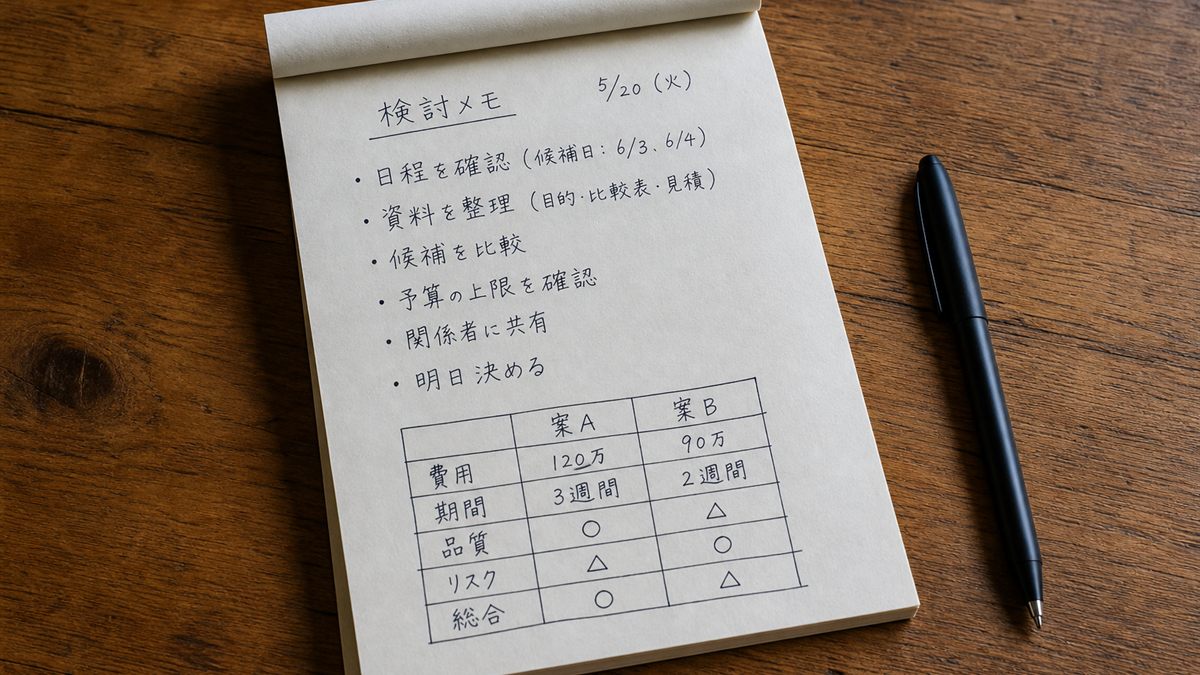 検討メモ 5/20（火）
・日程を確認（候補日：6/3、6/4）
・資料を整理（目的・比較表・見積）
・候補を比較
・予算の上限を確認
・関係者に共有
・明日決める
案A 案B
費用 120万 90万
期間 3週間 2週間
品質 ○ △
リスク △ ○
総合 ○ △